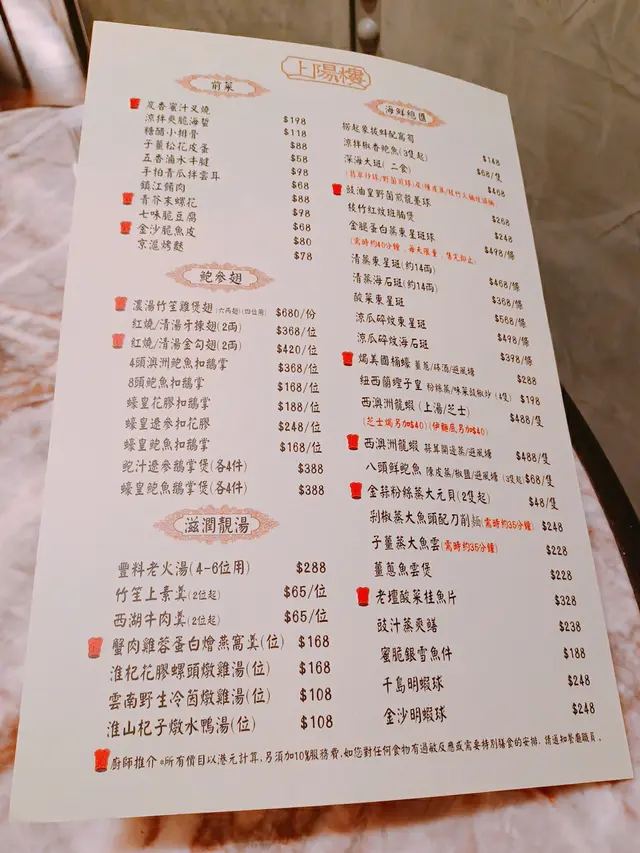 上陽樓
前菜
炭香蜜汁叉燒 $198
涼拌爽脆海蜇 $118
糖醋小排骨 $88
子薑松花皮蛋 $58
五香滷水牛腱 $98
手拍青瓜拌雲耳 $68
鎮江餚肉 $88
青芥末螺花 $98
七味脆豆腐 $68
金沙脆魚皮 $80
京滬烤麩 $78
鮑參翅
濃湯竹笙雞煲翅 (六両翅) (四位用) $680/份
紅燒/清湯牙揀翅(2両) $368/位
紅燒/清湯金勾翅(2両) $420/位
4頭澳洲鮑魚扣鵝掌 $368/位
8頭鮑魚扣鵝掌 $168/位
蠔皇花膠扣鵝掌 $188/位
蠔皇遼參扣花膠 $248/位
蠔皇鮑魚扣鵝掌 $168/位
鮑汁遼參鵝掌煲(各4件) $388
蠔皇鮑魚鵝掌煲(各4件) $388
滋潤靚湯
豐料老火湯(4-6位用) $288
竹笙上素羹(2位起) $65/位
西湖牛肉羹(2位起) $65/位
蟹肉雞蓉蛋白燴燕窩羹(位) $168
淮杞花膠螺頭燉雞湯(位) $168
雲南野生冷菌燉雞湯(位) $108
淮山杞子燉水鴨湯(位) $108
海鮮總匯
撈起象拔蚌配萵筍 $148
涼拌椒香鮑魚(3隻起) $68/隻
深海大班(二食) $468
豉油皇野菌煎龍躉球 $268
枝竹紅炆班腩煲 $248
金腿蛋白蒸東星班球 $498/條
(需時約40分鐘，每天限量，售完即止)
清蒸東星班(約14両) $468/條
清蒸海石班(約14両) $368/條
酸菜東星班 $568/條
涼瓜碎炆東星班 $498/條
涼瓜碎炆海石班 $398/條
焗美國桶蠔 薑蔥/砵酒/避風塘 $288
紐西蘭蟶子皇 粉絲蒸/味菜豉椒炒 (4隻) $198
西澳洲龍蝦 (上湯/芝士) $488/隻
(芝士焗另加$40)(伊麵底另加$40)
西澳洲龍蝦 蒜茸開邊蒸/避風塘 $488/隻
八頭鮮鮑魚 陳皮蒸/椒鹽/避風塘 (3隻起) $68/隻
金蒜粉絲蒸大元貝(2隻起) $48/隻
剁椒蒸大魚頭配刀削麵(需時約35分鐘) $248
子薑蒸大魚雲(需時約35分鐘) $228
薑蔥魚雲煲 $228
老壇酸菜桂魚片 $328
豉汁蒸爽鱔 $238
蜜脆銀雪魚件 $188
千島明蝦球 $248
金沙明蝦球 $248
廚師推介 *所有價目以港元計算，另須加10%服務費，如您對任何食物有過敏反應或需要特別膳食的安排，請通知餐廳職員。